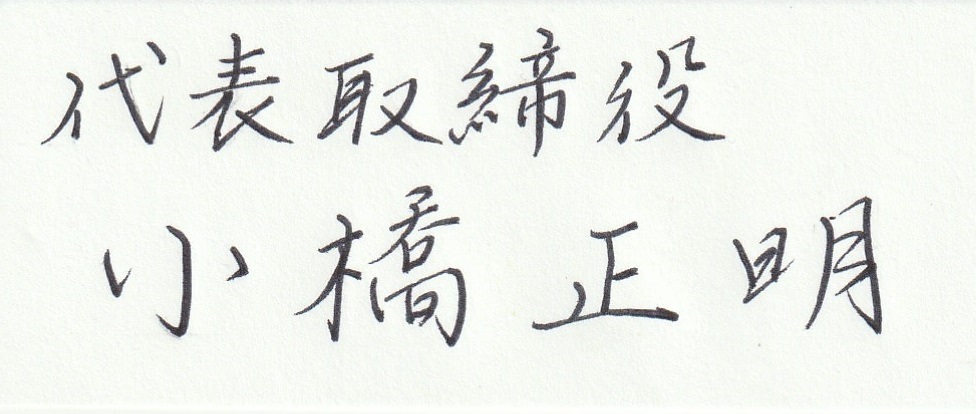 代表取締役
小橋正明